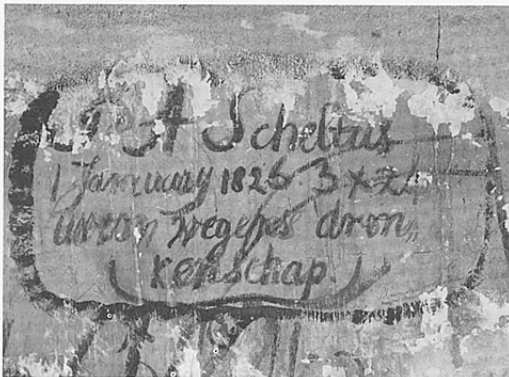 Scheltus
1 January 1825. 3 x 24
uuren, wegens dron„
kenschap.